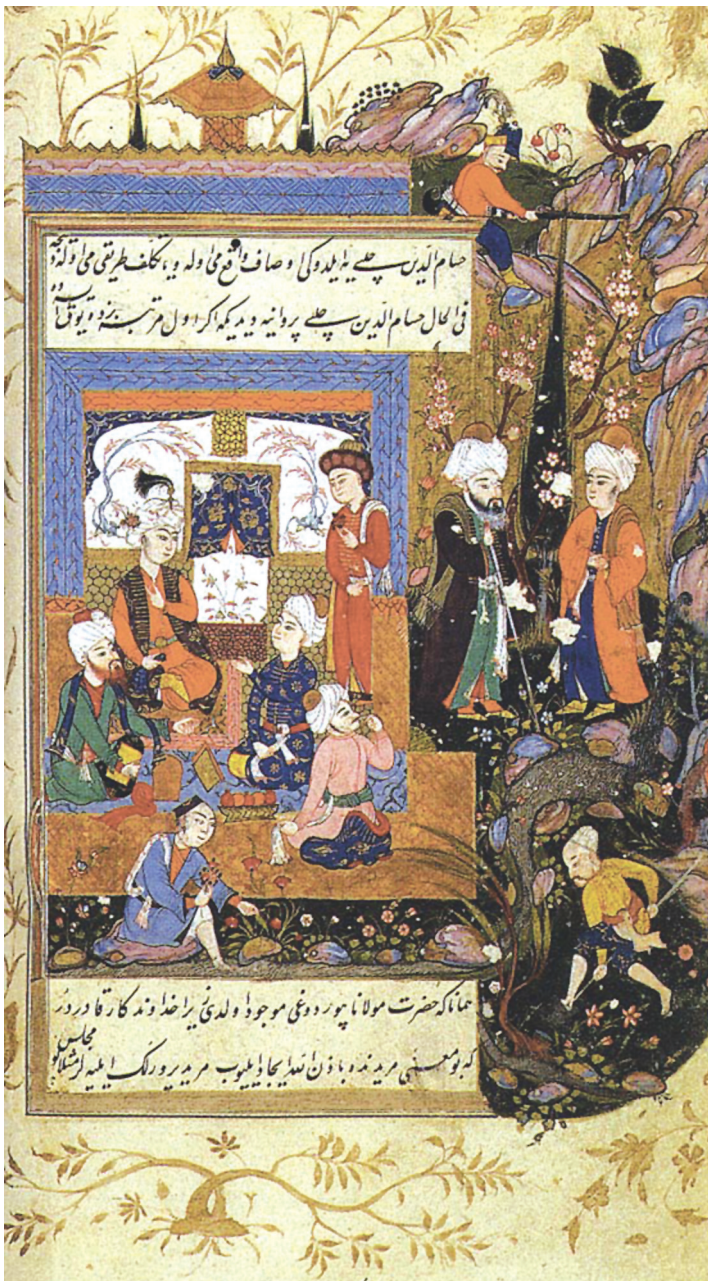 حسام الدین چلبی یه ایلدوکی اوصاف واقع می اوله و یا تکلف طریقی می اوله
فی الحال حسام الدین چلبی پروانیه دیدیکه اکر اول مرتبه
همانا که حضرت مولانا بیوردوغی موجود اولدی زیرا خداوندکار قادردر
که بو معنی مریدنده باذن الله ایجاد ایلیوب مریدی و رنک ایلیه
مجالس